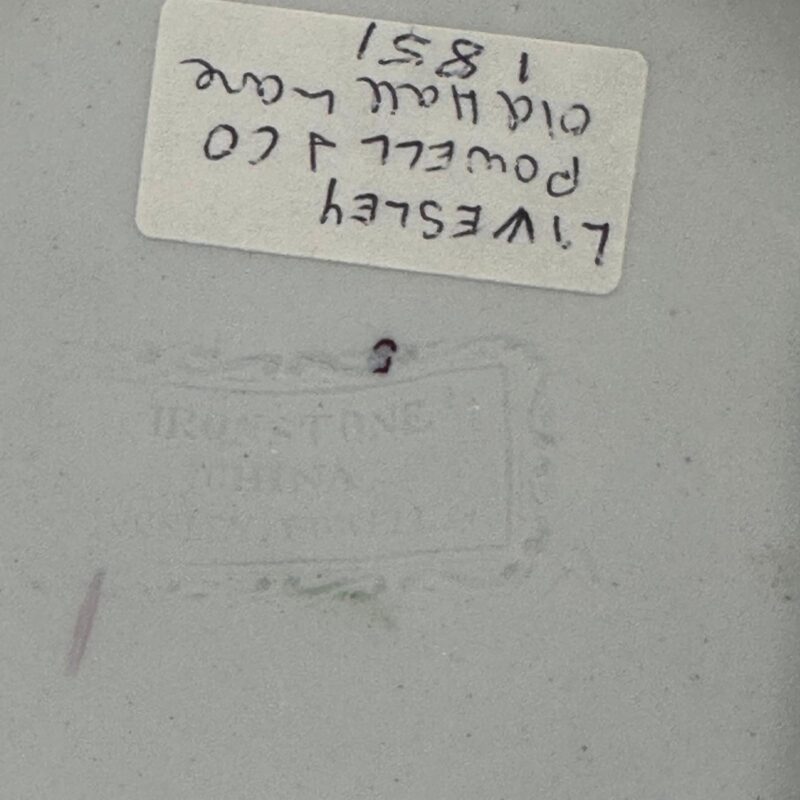 LIVESLEY
POWELL & CO
Old Hall Lane
1851
5
IRONSTONE
CHINA